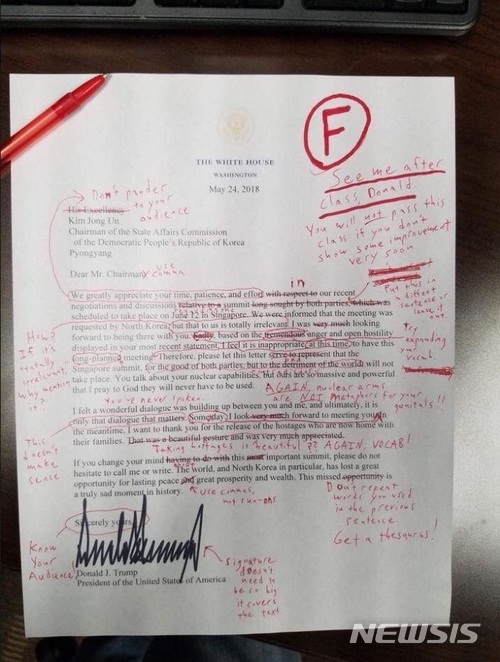 F
See me after
class, Donald
You will not pass this
class if you don't
show some improvement
very soon
THE WHITE HOUSE
WASHINGTON
May 24, 2018
Don't pander
to your
audience
His Excellency
Kim Jong Un
Chairman of the State Affairs Commission
of the Democratic People's Republic of Korea
Pyongyang
Dear Mr. Chairman
use
comma
in
We greatly appreciate your time, patience, and effort with respect to our recent
negotiations and discussions relative to a summit long sought by both parties, which was
scheduled to take place on June 12 in Singapore. We were informed that the meeting was
requested by North Korea, but that to us is totally irrelevant. I was very much looking
forward to being there with you. Sadly, based on the tremendous anger and open hostility
displayed in your most recent statement, I feel it is inappropriate, at this time, to have this
long-planned meeting. Therefore, please let this letter serve to represent that the
Singapore summit, for the good of both parties, but to the detriment of the world, will not
take place. You talk about your nuclear capabilities, but ours are so massive and powerful
that I pray to God they will never have to be used.
Put this in
different
sentence or
leave it
Try
expanding
your
vocab
How?
If it's
totally
irrelevant,
why mention
it?
AGAIN, nuclear arms
are NOT metaphors for your
genitals!!
You've never spoken.
I felt a wonderful dialogue was building up between you and me, and ultimately, it is
only that dialogue that matters. Someday, I look very much forward to meeting you. In
the meantime, I want to thank you for the release of the hostages who are now home with
their families. That was a beautiful gesture and was very much appreciated.
This
doesn't
make
sense
Taking hostages is beautiful?? AGAIN, VOCAB!
If you change your mind having to do with this most important summit, please do not
hesitate to call me or write. The world, and North Korea in particular, has lost a great
opportunity for lasting peace and great prosperity and wealth. This missed opportunity is
a truly sad moment in history.
use commas,
not run-ons
Don't repeat
words you used
in the previous
sentence.
Get a thesaurus!
Sincerely yours,
Know
Your
Audience
Donald J. Trump
President of the United States of America
Signature
doesn't
need to
be so big
it covers
the text
NEWSIS